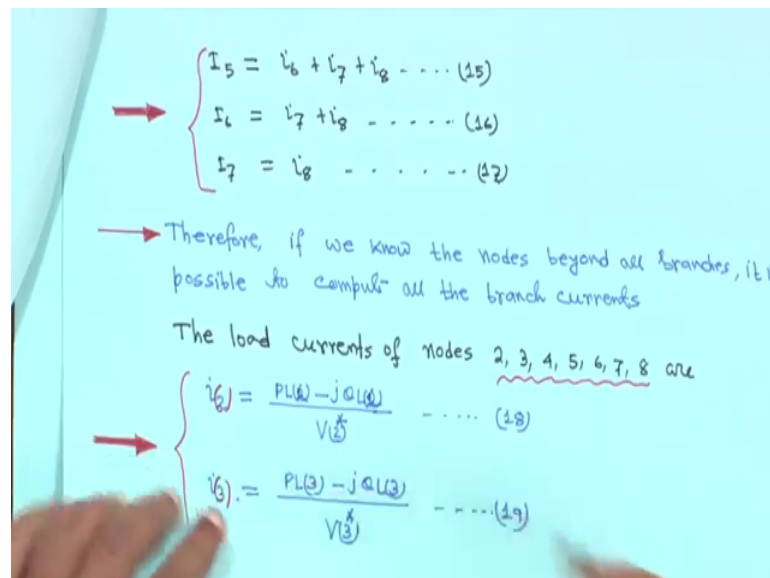 I5 = i6 + i7 + i8 - .... (15)
I6 = i7 + i8 ...... (16)
I7 = i8 - . . . -. (17)
Therefore, if we know the nodes beyond all branches, it i
possible to comput all the branch currents
The load currents of nodes 2, 3, 4, 5, 6, 7, 8 are
i(2) = PL(2) - jQL(2) / V*(2) - .... (18)
i(3). = PL(3) - jQL(3) / V*(3) - - ....(19)